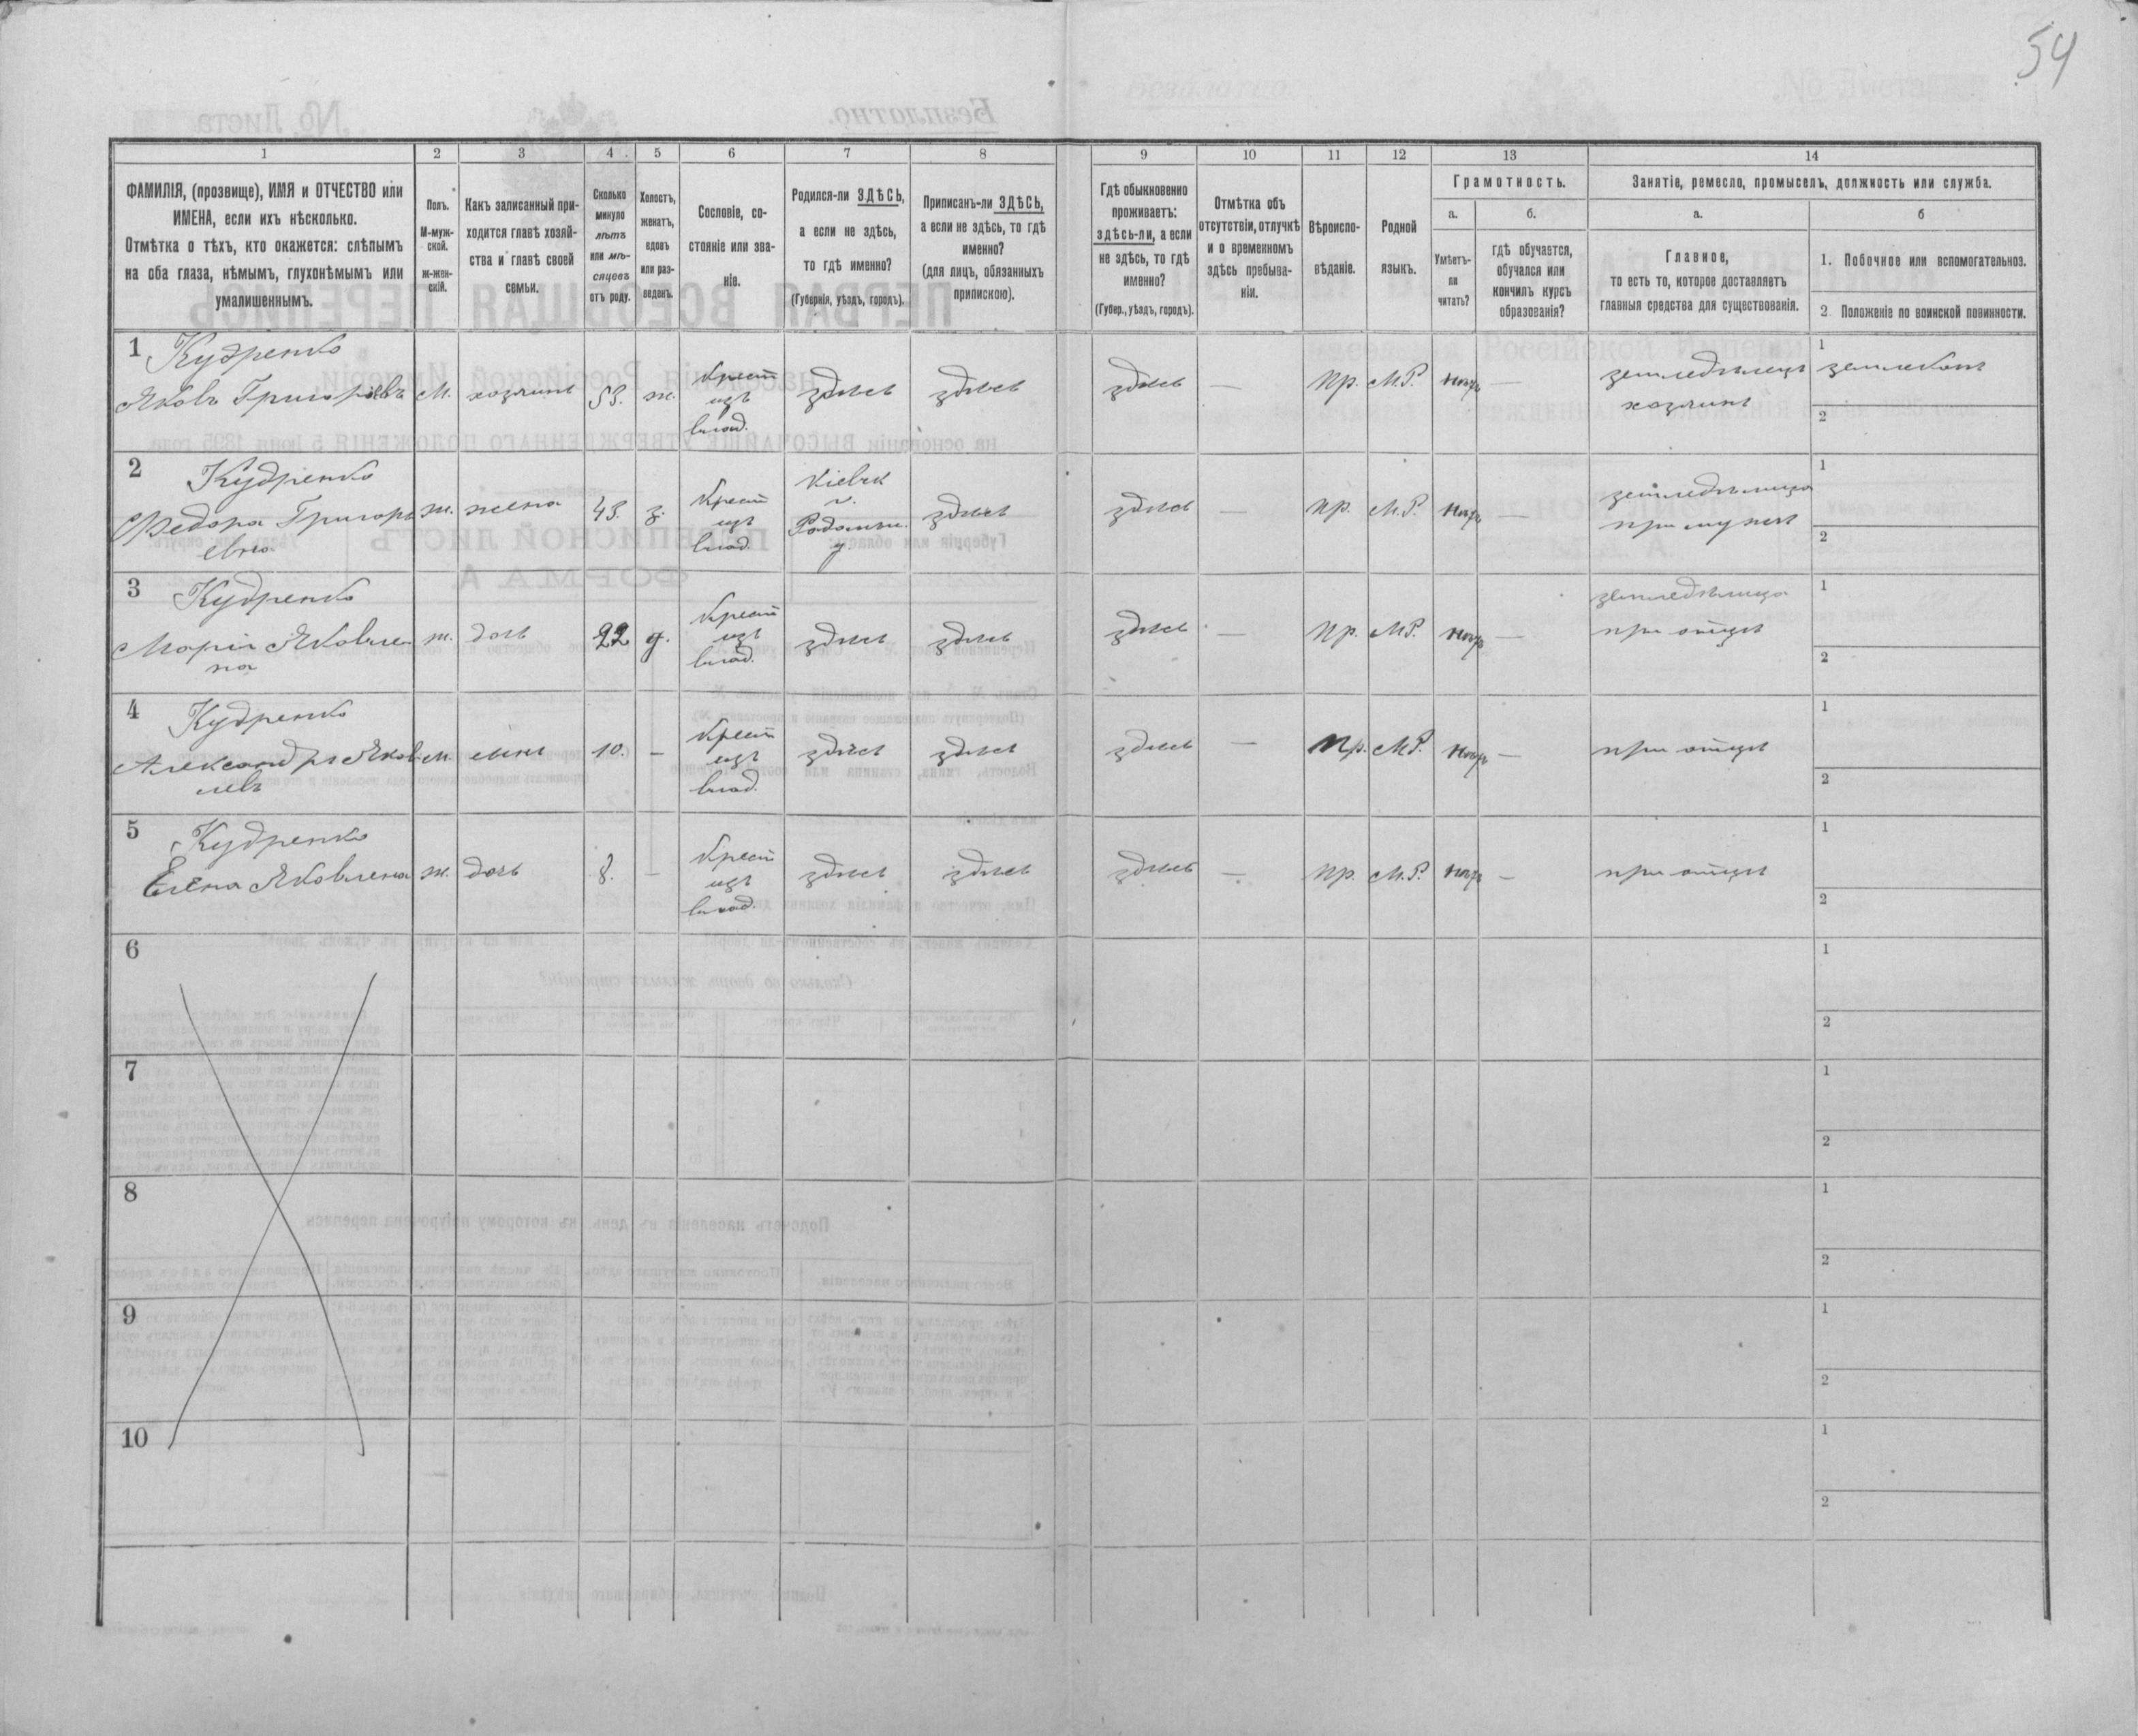 54
1 2 3 4 5 6 7 8 9 10 11 12 13 14
ФАМИЛІЯ, (прозвище), ИМЯ и ОТЧЕСТВО или
ИМЕНА, если ихъ нѣсколько.
Отмѣтка о тѣхъ, кто окажется: слѣпымъ
на оба глаза, нѣмымъ, глухонѣмымъ или
умалишеннымъ.
Полъ.
М-муж-
ской.
Ж-жен-
скій.
Какъ записанный при-
ходится главѣ хозяй-
ства и главѣ своей
семьи.
Сколько
минуло
лѣтъ
или мѣ-
сяцевъ
отъ роду.
Холостъ,
женатъ,
вдовъ
или раз-
веденъ.
Сословіе, со-
стояніе или зва-
ніе.
Родился-ли ЗДѢСЬ,
а если не здѣсь,
то гдѣ именно?
(Губернія, уѣздъ, городъ).
Приписанъ-ли ЗДѢСЬ,
а если не здѣсь, то гдѣ
именно?
(для лицъ, обязанныхъ
припискою).
Гдѣ обыкновенно
проживаетъ:
здѣсь-ли, а если
не здѣсь, то гдѣ
именно?
(Губер., уѣздъ, городъ).
Отмѣтка объ
отсутствіи, отлучкѣ
и о временномъ
здѣсь пребыва-
ніи.
Вѣроиспо-
вѣданіе.
Родной
языкъ.
Грамотность.
а.
Умѣетъ-
ли
читать?
б.
гдѣ обучается,
обучался или
кончилъ курсъ
образованія?
Занятіе, ремесло, промыселъ, должность или служба.
а.
Главное,
то есть то, которое доставляетъ
главныя средства для существованія.
б
1. Побочное или вспомогательное.
2. Положеніе по воинской повинности.
1 Кудренко
Яковъ Григорьевъ
М.
хозяинъ
53.
ж.
Крест
изъ
влад.
здѣсь
здѣсь
здѣсь
—
пр.
М.Р.
нѣтъ
—
земледѣлецъ
хозяинъ
1
землекопъ
2
2 Кудренко
Федора Григорь
евна
ж.
жена
43.
з.
Крест
изъ
влад.
Кіевск
г.
Радомы.
у.
здѣсь
здѣсь
—
пр.
М.Р.
нѣтъ
—
земледѣлица
при мужѣ
1
2
3 Кудренко
Марія Яковлев
на
ж.
дочь
22
д.
Крест
изъ
влад.
здѣсь
здѣсь
здѣсь
—
пр.
М.Р.
нѣтъ
—
земледѣлица
при отцѣ
1
2
4 Кудренко
Александръ Яков
левъ
м.
сынъ
10.
—
Крест
изъ
влад.
здѣсь
здѣсь
здѣсь
—
пр.
М.Р.
нѣтъ
—
при отцѣ
1
2
5 Кудренко
Елена Яковлена
ж.
дочь
8.
—
Крест
изъ
влад.
здѣсь
здѣсь
здѣсь
—
пр.
М.Р.
нѣтъ
—
при отцѣ
1
2
6
1
2
7
1
2
8
1
2
9
1
2
10
1
2